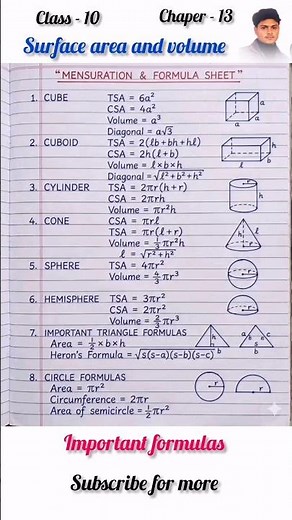 Class - 10 Chaper - 13
Surface area and volume
"MENSURATION & FORMULA SHEET"
1. CUBE TSA = 6a²
CSA = 4a²
Volume = a³
Diagonal = a√3
a
a
a
2. CUBOID TSA = 2(lb+bh+hl)
CSA = 2h(l+b)
Volume = l×b×h
Diagonal = √l²+b²+h²
h
b
l
3. CYLINDER TSA = 2πr(h+r)
CSA = 2πrh
Volume = πr²h
r
h
4. CONE CSA = πrl
TSA = πr(l+r)
Volume = 1/3πr²h
l = √r²+h²
h
l
r
5. SPHERE TSA = 4πr²
Volume = 4/3πr³
r
6. HEMISPHERE TSA = 3πr²
CSA = 2πr²
Volume = 2/3πr³
r
7. IMPORTANT TRIANGLE FORMULAS
Area = 1/2×b×h
Heron's Formula = √s(s-a)(s-b)(s-c)
h
b
a
c
b
8. CIRCLE FORMULAS
Area = πr²
Circumference = 2πr
Area of semicircle = 1/2πr²
r
r
Important formulas
Subscribe for more